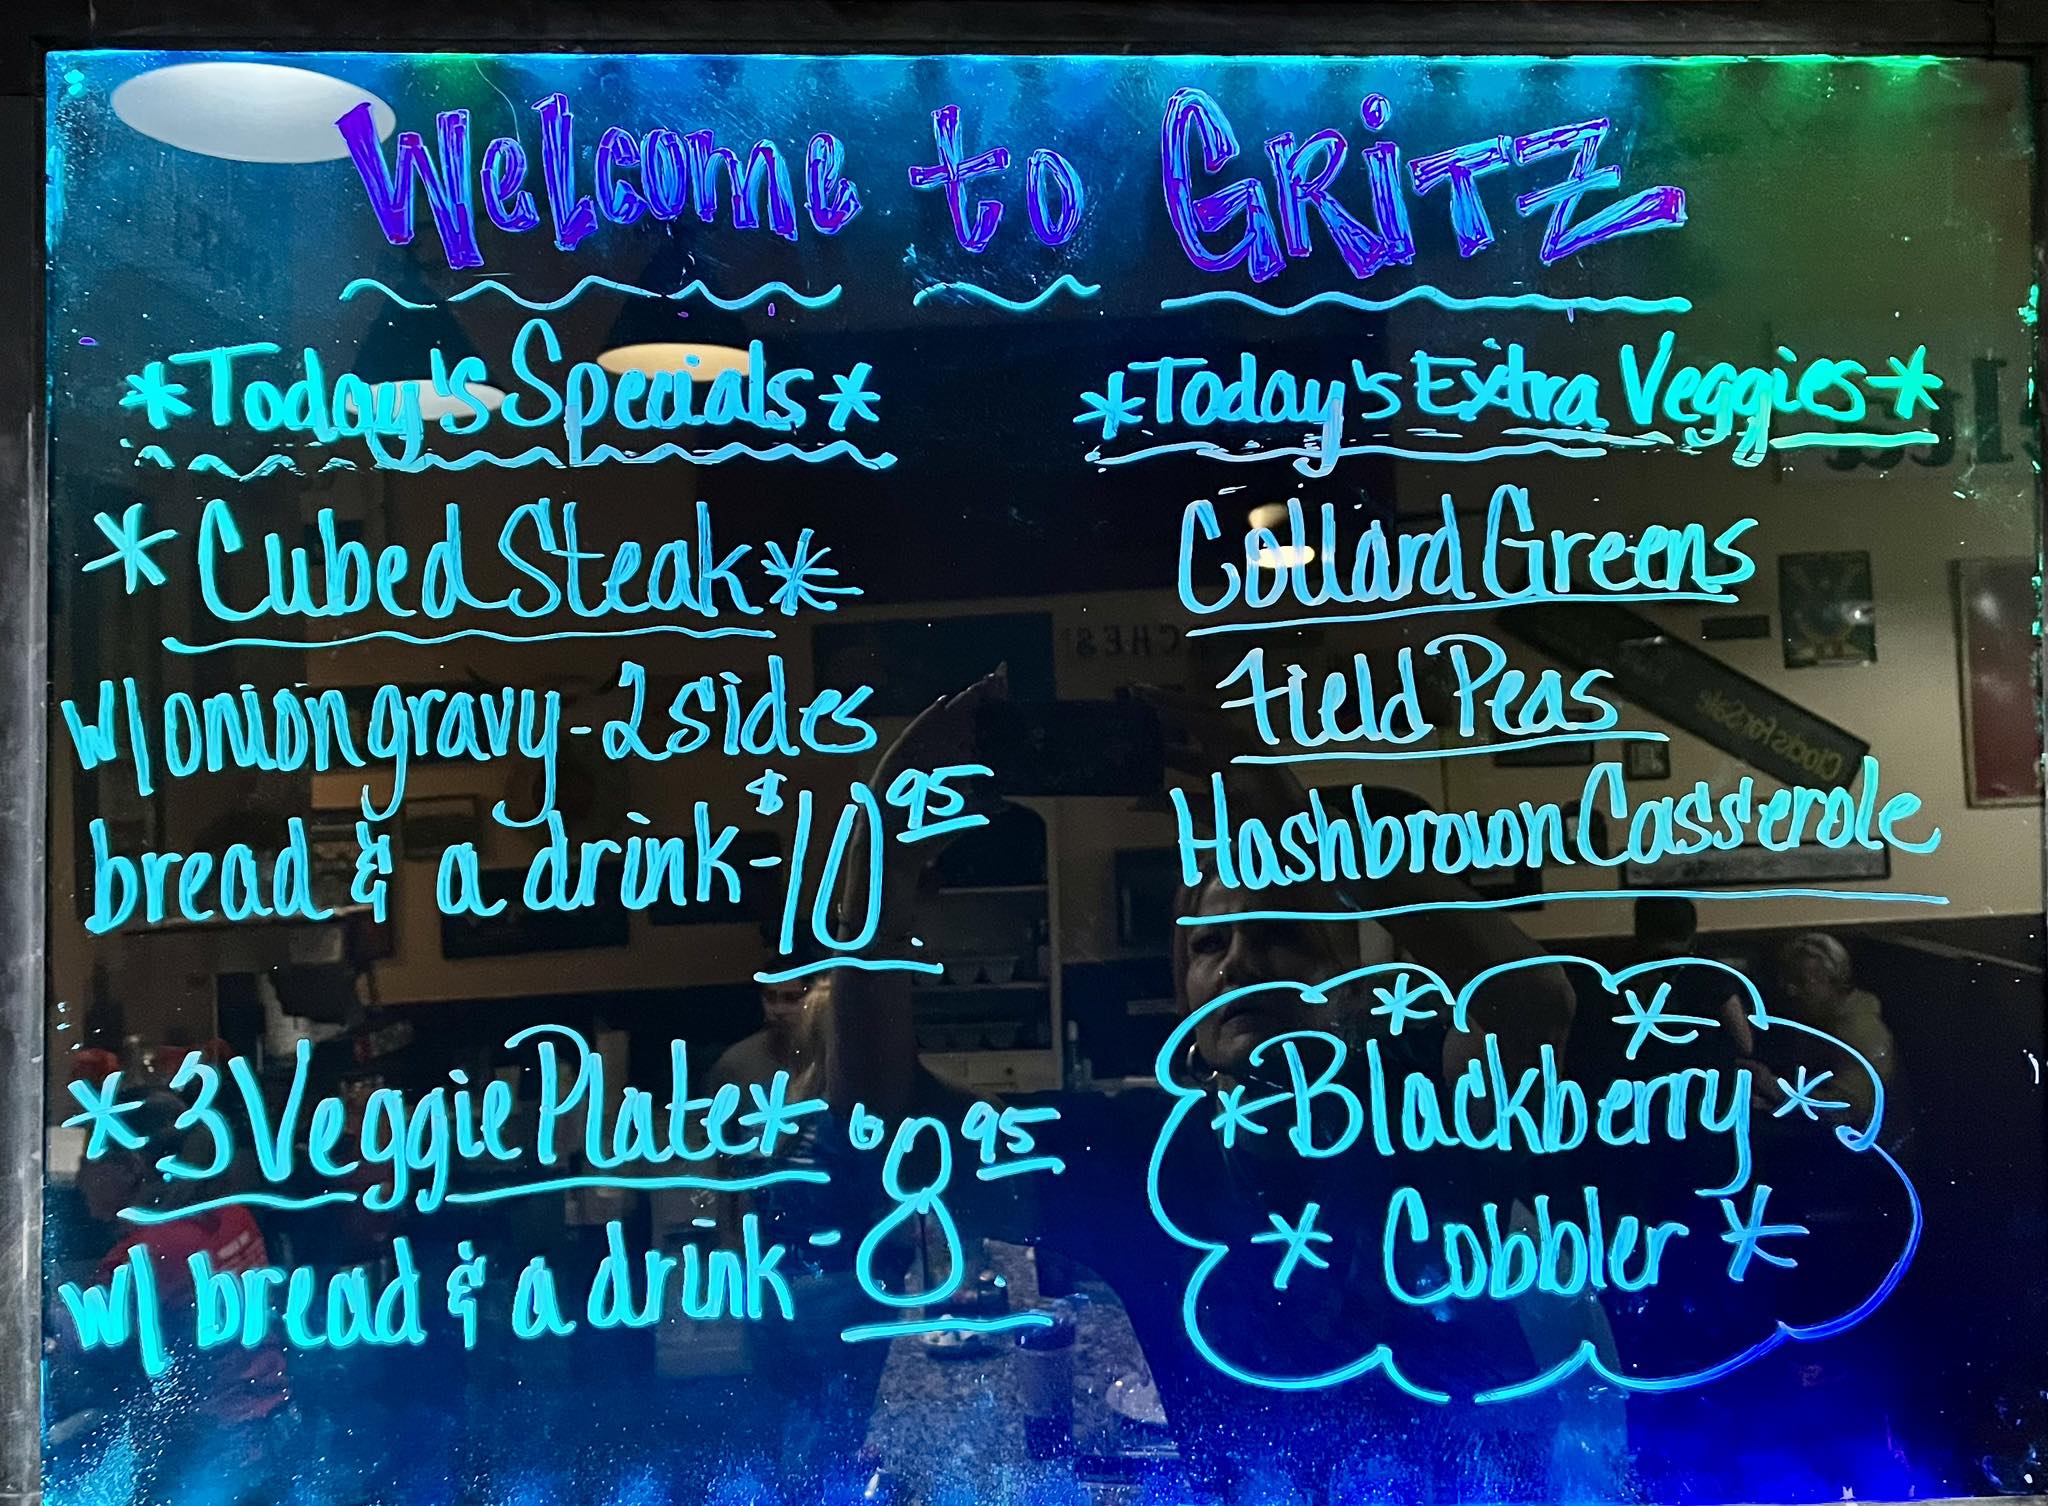 Welcome to GRiTZ
*Today's Specials*
*Cubed Steak*
w/ onion gravy - 2 sides
bread & a drink - $10.95
*3 Veggie Plate*
w/ bread & a drink - $8.95
*Today's Extra Veggies*
Collard Greens
Field Peas
Hashbrown Casserole
* *
*Blackberry*
*Cobbler*
Clocks For Sale